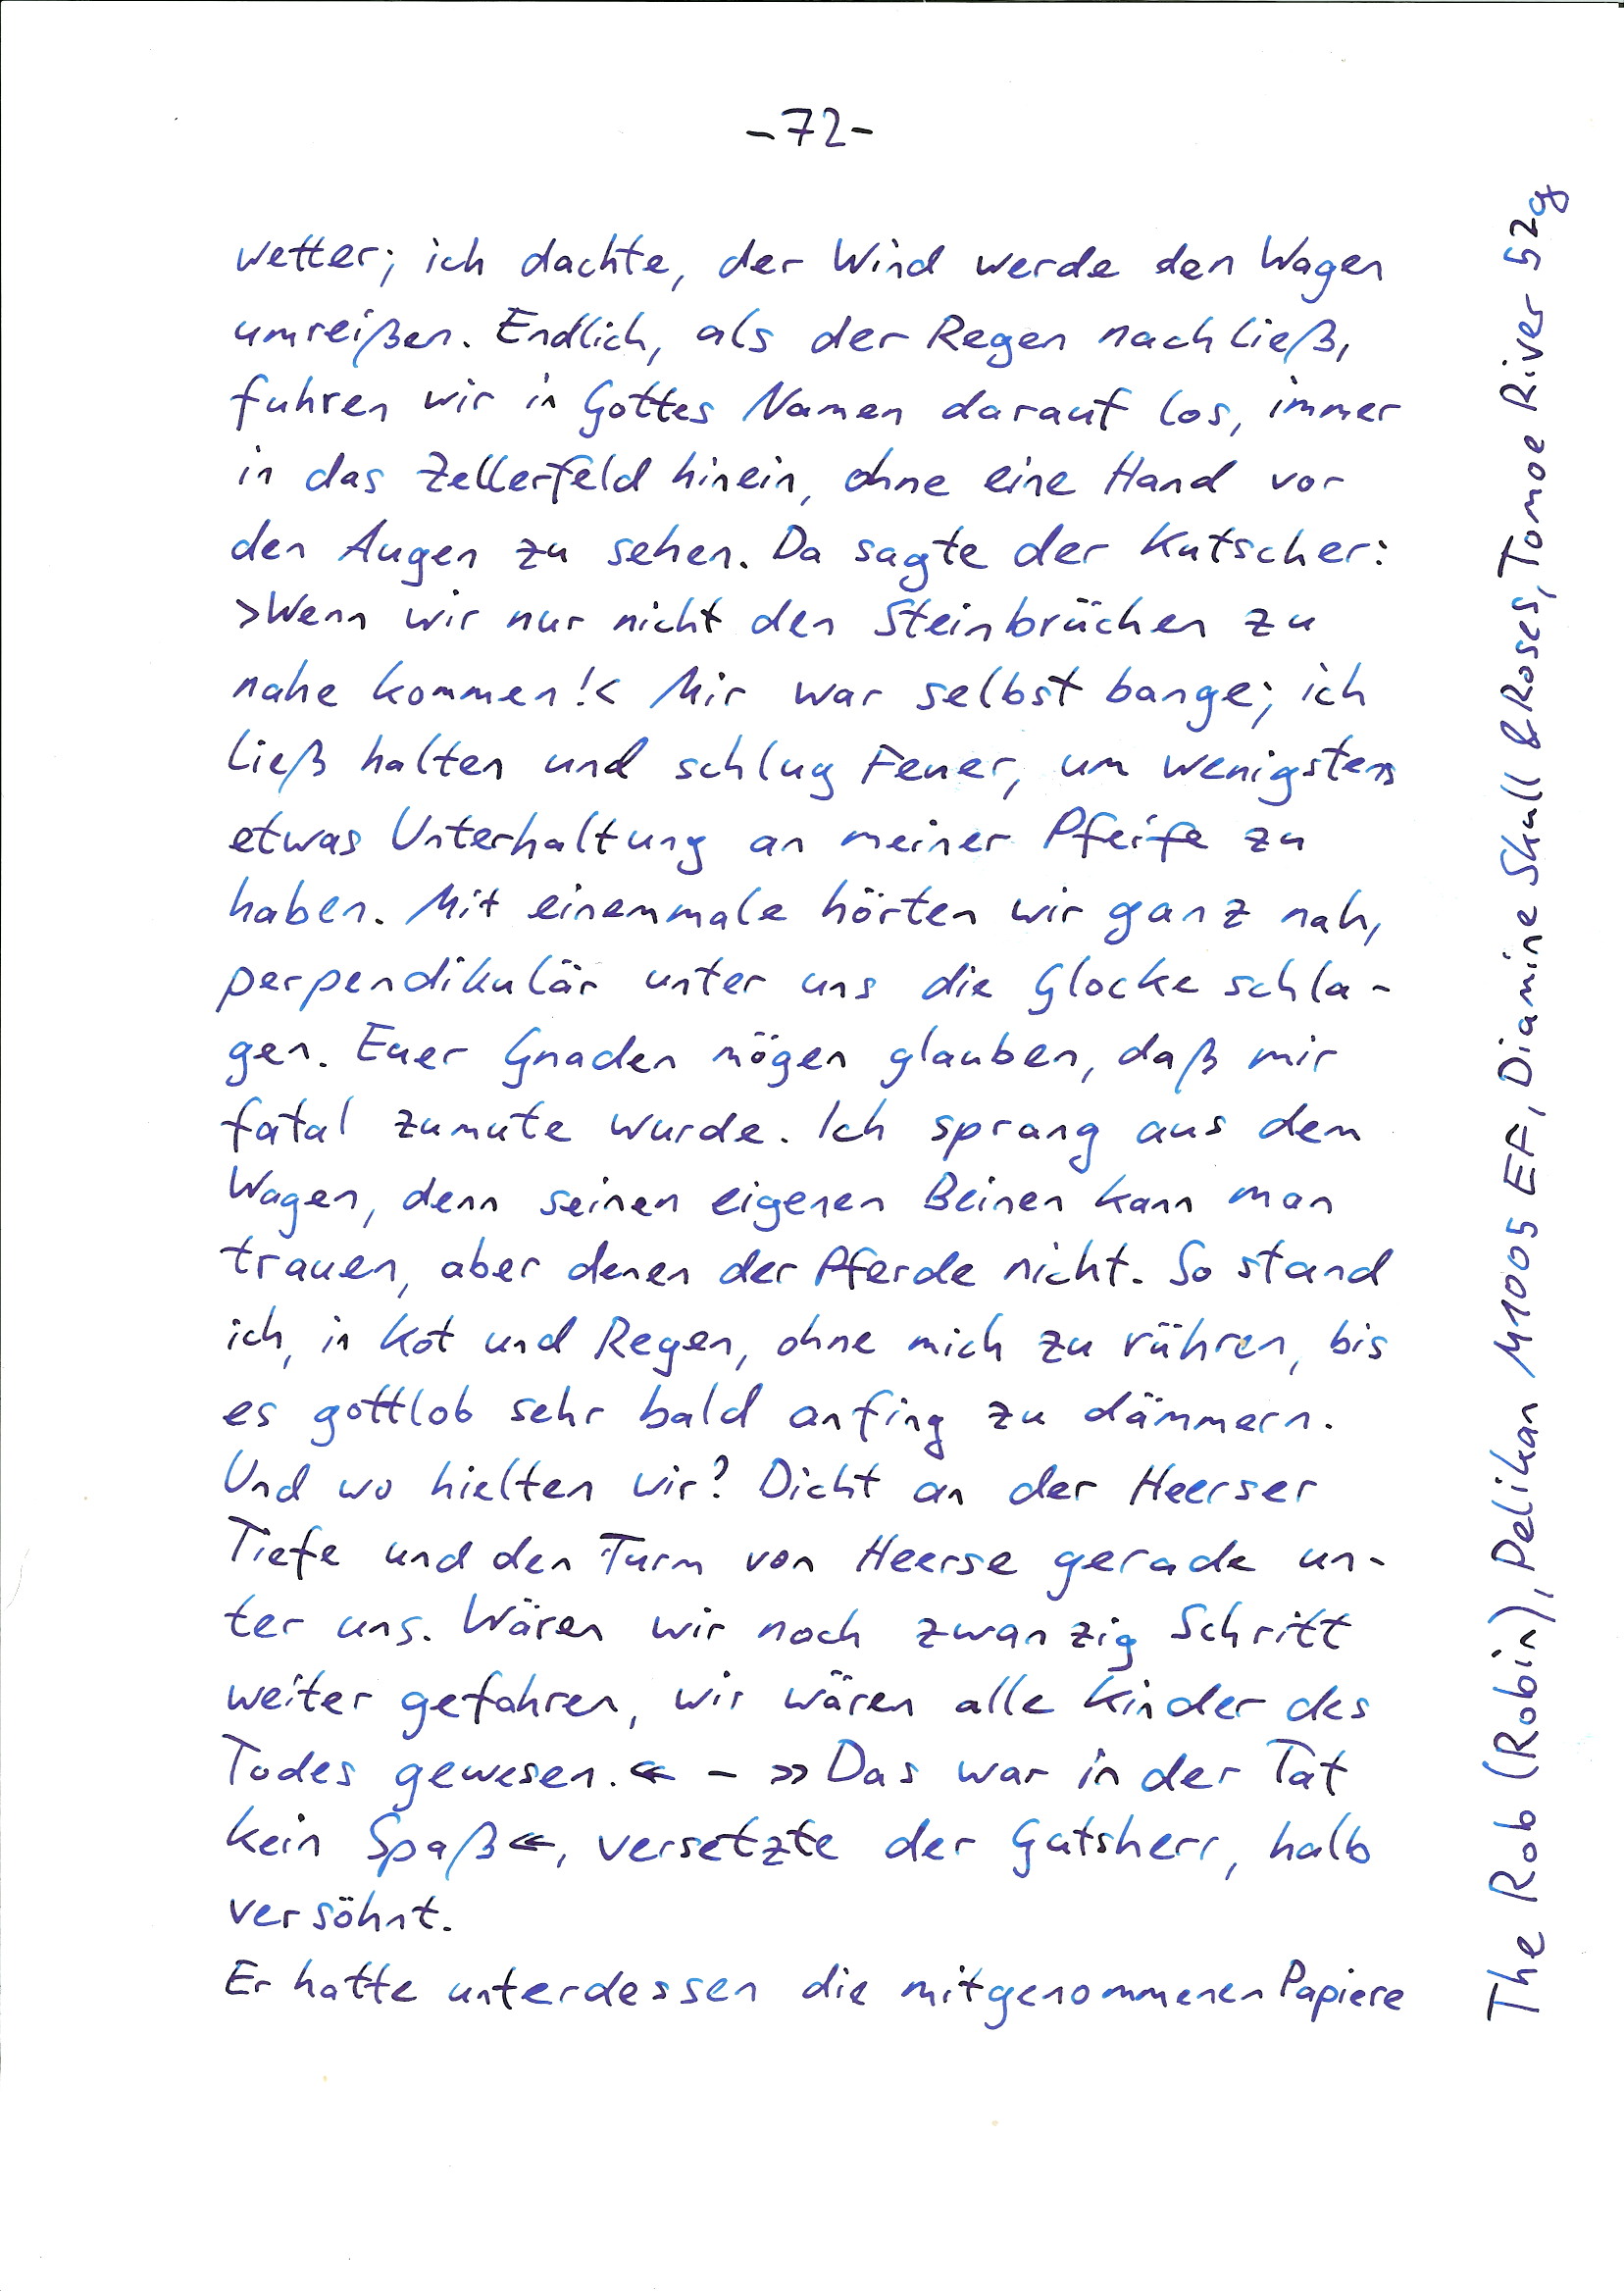 -72-
wetter; ich dachte, der Wind werde den Wagen
umreißen. Endlich, als der Regen nachließ,
fuhren wir in Gottes Namen darauf los, immer
in das Zellerfeld hinein, ohne eine Hand vor
den Augen zu sehen. Da sagte der Kutscher:
>Wenn wir nur nicht den Steinbrüchen zu
nahe kommen!< Mir war selbst bange; ich
ließ halten und schlug Feuer, um wenigstens
etwas Unterhaltung an meiner Pfeife zu
haben. Mit einemmale hörten wir ganz nah,
perpendikulär unter uns die Glocke schla-
gen. Euer Gnaden mögen glauben, daß mir
fatal zumute wurde. Ich sprang aus dem
Wagen, denn seinen eigenen Beinen kann man
trauen, aber denen der Pferde nicht. So stand
ich, in Kot und Regen, ohne mich zu rühren, bis
es gottlob sehr bald anfing zu dämmern.
Und wo hielten wir? Dicht an der Heerser
Tiefe und den Turm von Heerse gerade un-
ter uns. Wären wir noch zwanzig Schritt
weiter gefahren, wir wären alle Kinder des
Todes gewesen.« – »Das war in der Tat
kein Spaß«, versetzte der Gutsherr, halb
versöhnt.
Er hatte unterdessen die mitgenommenen Papiere
The Rob (Robin), Pelikan M1005 EF, Diamine Skull & Roses, Tomoe River 52g